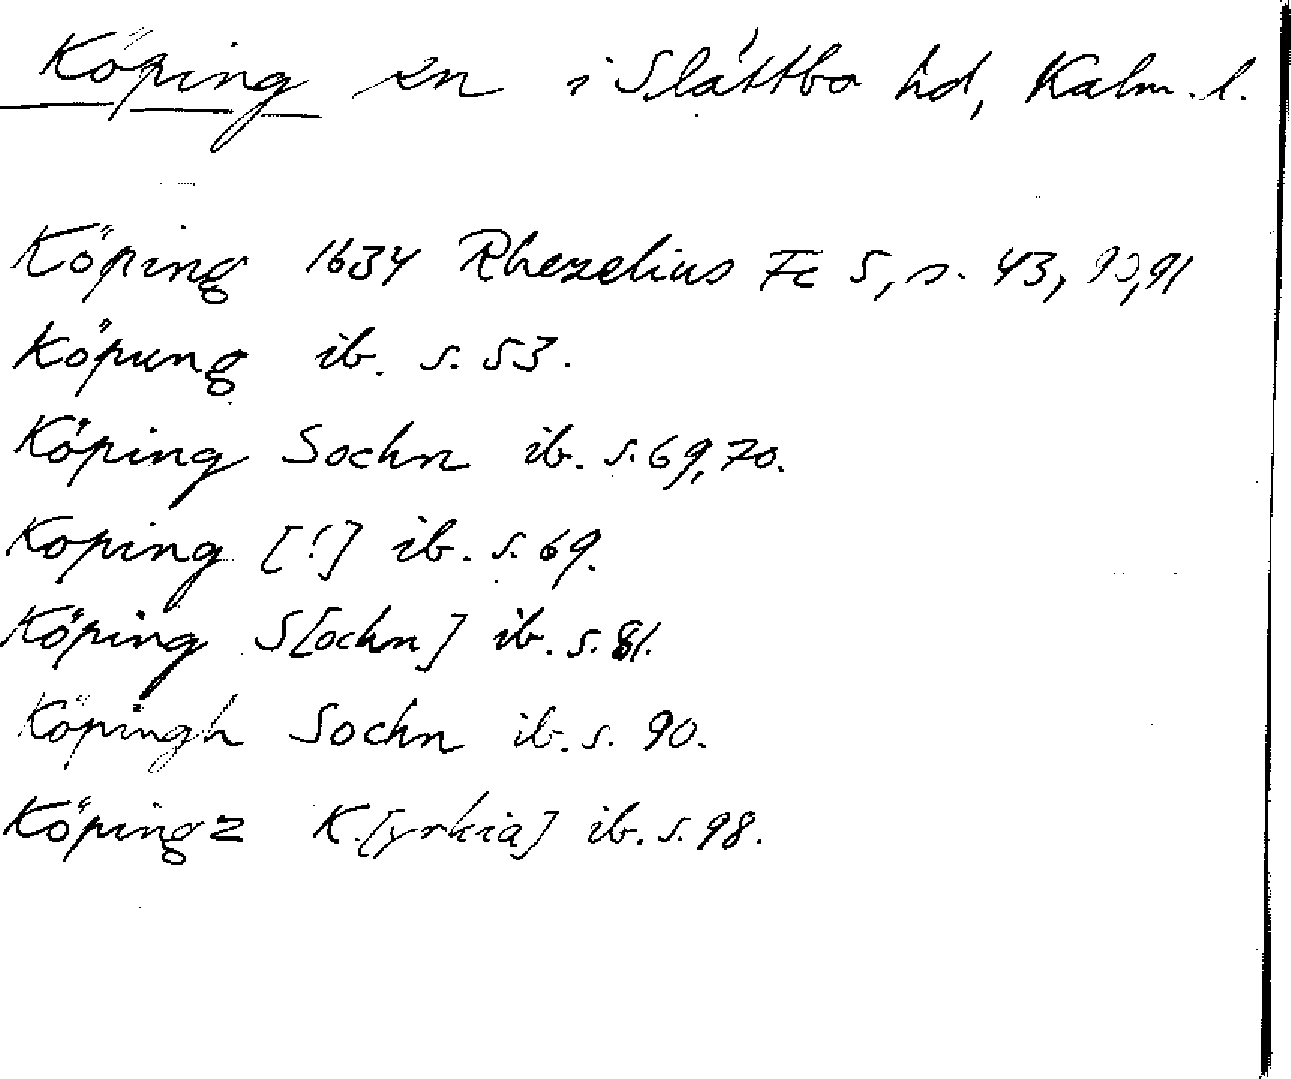 Köping sn i Slättbo hd, Kalm. l.
Köping 1634 Rhezelius Fc 5, s. 43, 90, 91
Köpung ib. s. 53.
Köping Sochn ib. s. 69, 70.
Koping [!] ib. s. 69.
Köping S[ochn] ib. s. 81.
Köpingh Sochn ib. s. 90.
Köpingz K.[yrkia] ib. s. 98.